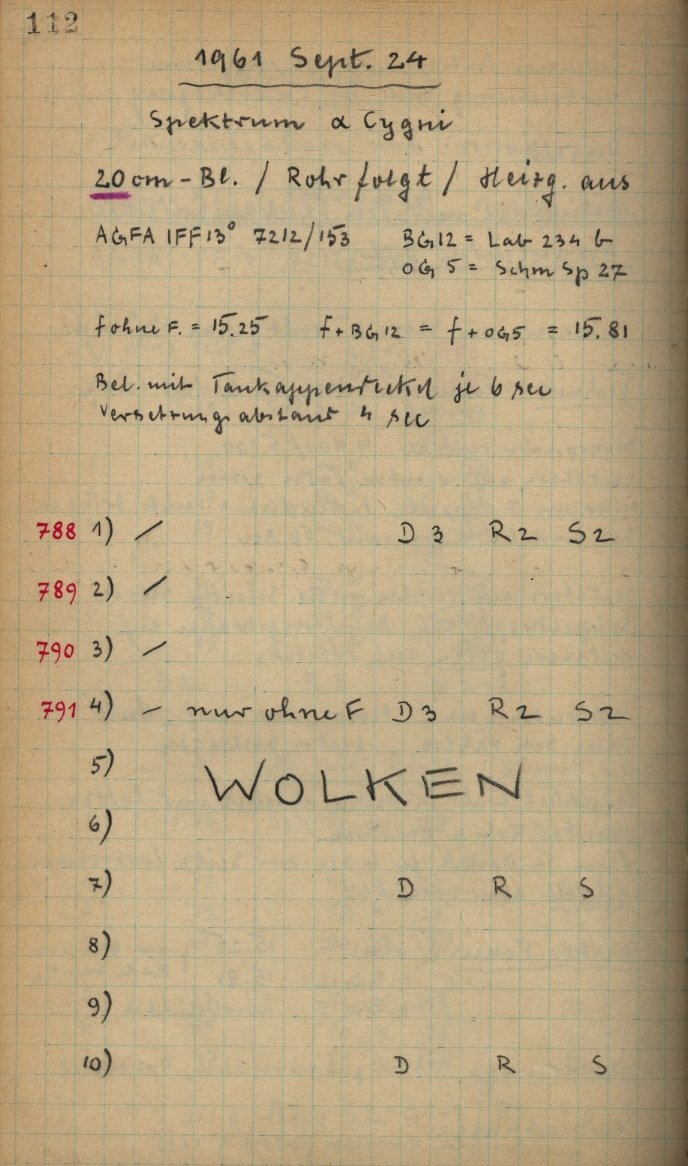 112
1961 Sept. 24
Spektrum α Cygni
20 cm - Bl. / Rohr folgt / Heizg. aus
AGFA IFF 13° 7212/153 BG12 = Lab 234 b
OG 5 = Schm Sp 27
f ohne F. = 15.25 f + BG12 = f + OG5 = 15.81
Bel. mit Taukappendeckel je 6 sec
Versetzungsabstand 4 sec
788 1) / D 3 R 2 S 2
789 2) /
790 3) /
791 4) – nur ohne F D 3 R 2 S 2
5)
WOLKEN
6)
7) D R S
8)
9)
10) D R S